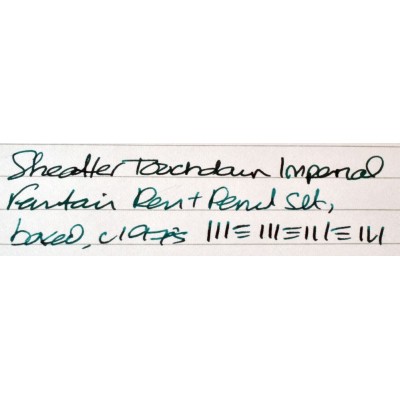 Sheaffer Touchdown Imperial
Fountain Pen + Pencil Set,
boxed, c1970s